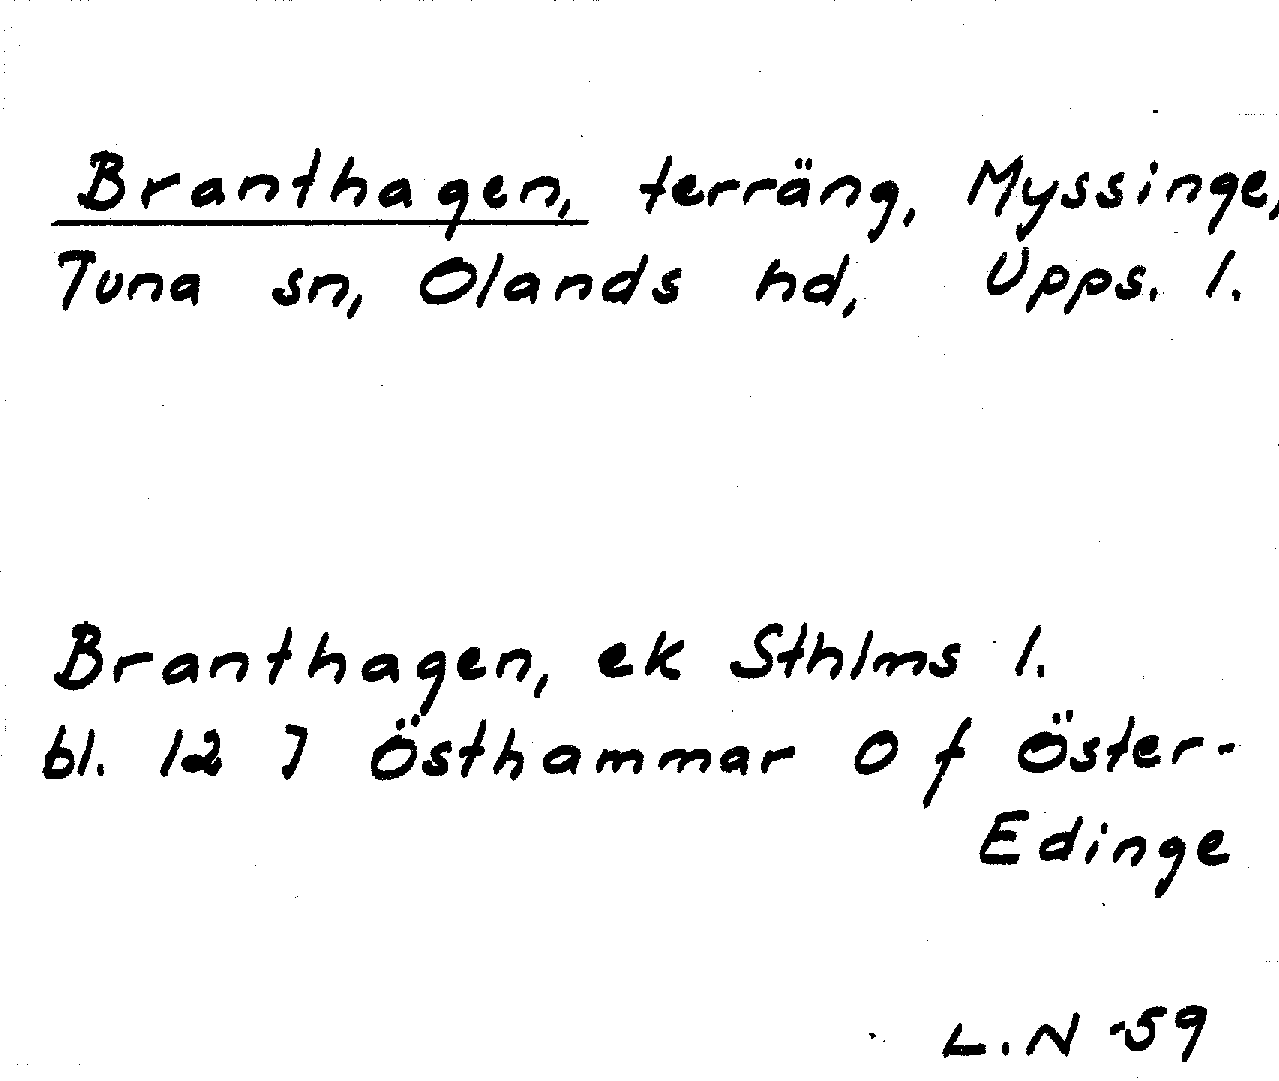 Branthagen, terräng, Myssinge,
Tuna sn, Olands hd, Upps. l.
Branthagen, ek Sthlms l.
bl. 12 J Östhammar O f Öster-
Edinge
L.N -59